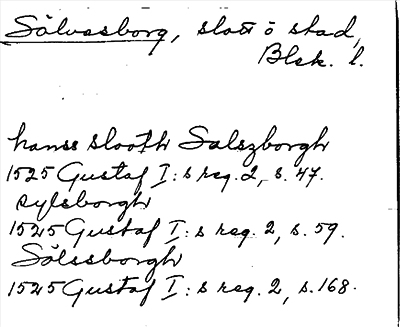 Sölvesborg, slott o stad,
Blek. l.
hanss slooth Salszborgh
1525 Gustaf I:s reg. 2, s. 47.
Sylsborgh
1525 Gustaf I:s reg. 2, s. 59.
Sölssborgh
1525 Gustaf I:s reg. 2, s. 168.